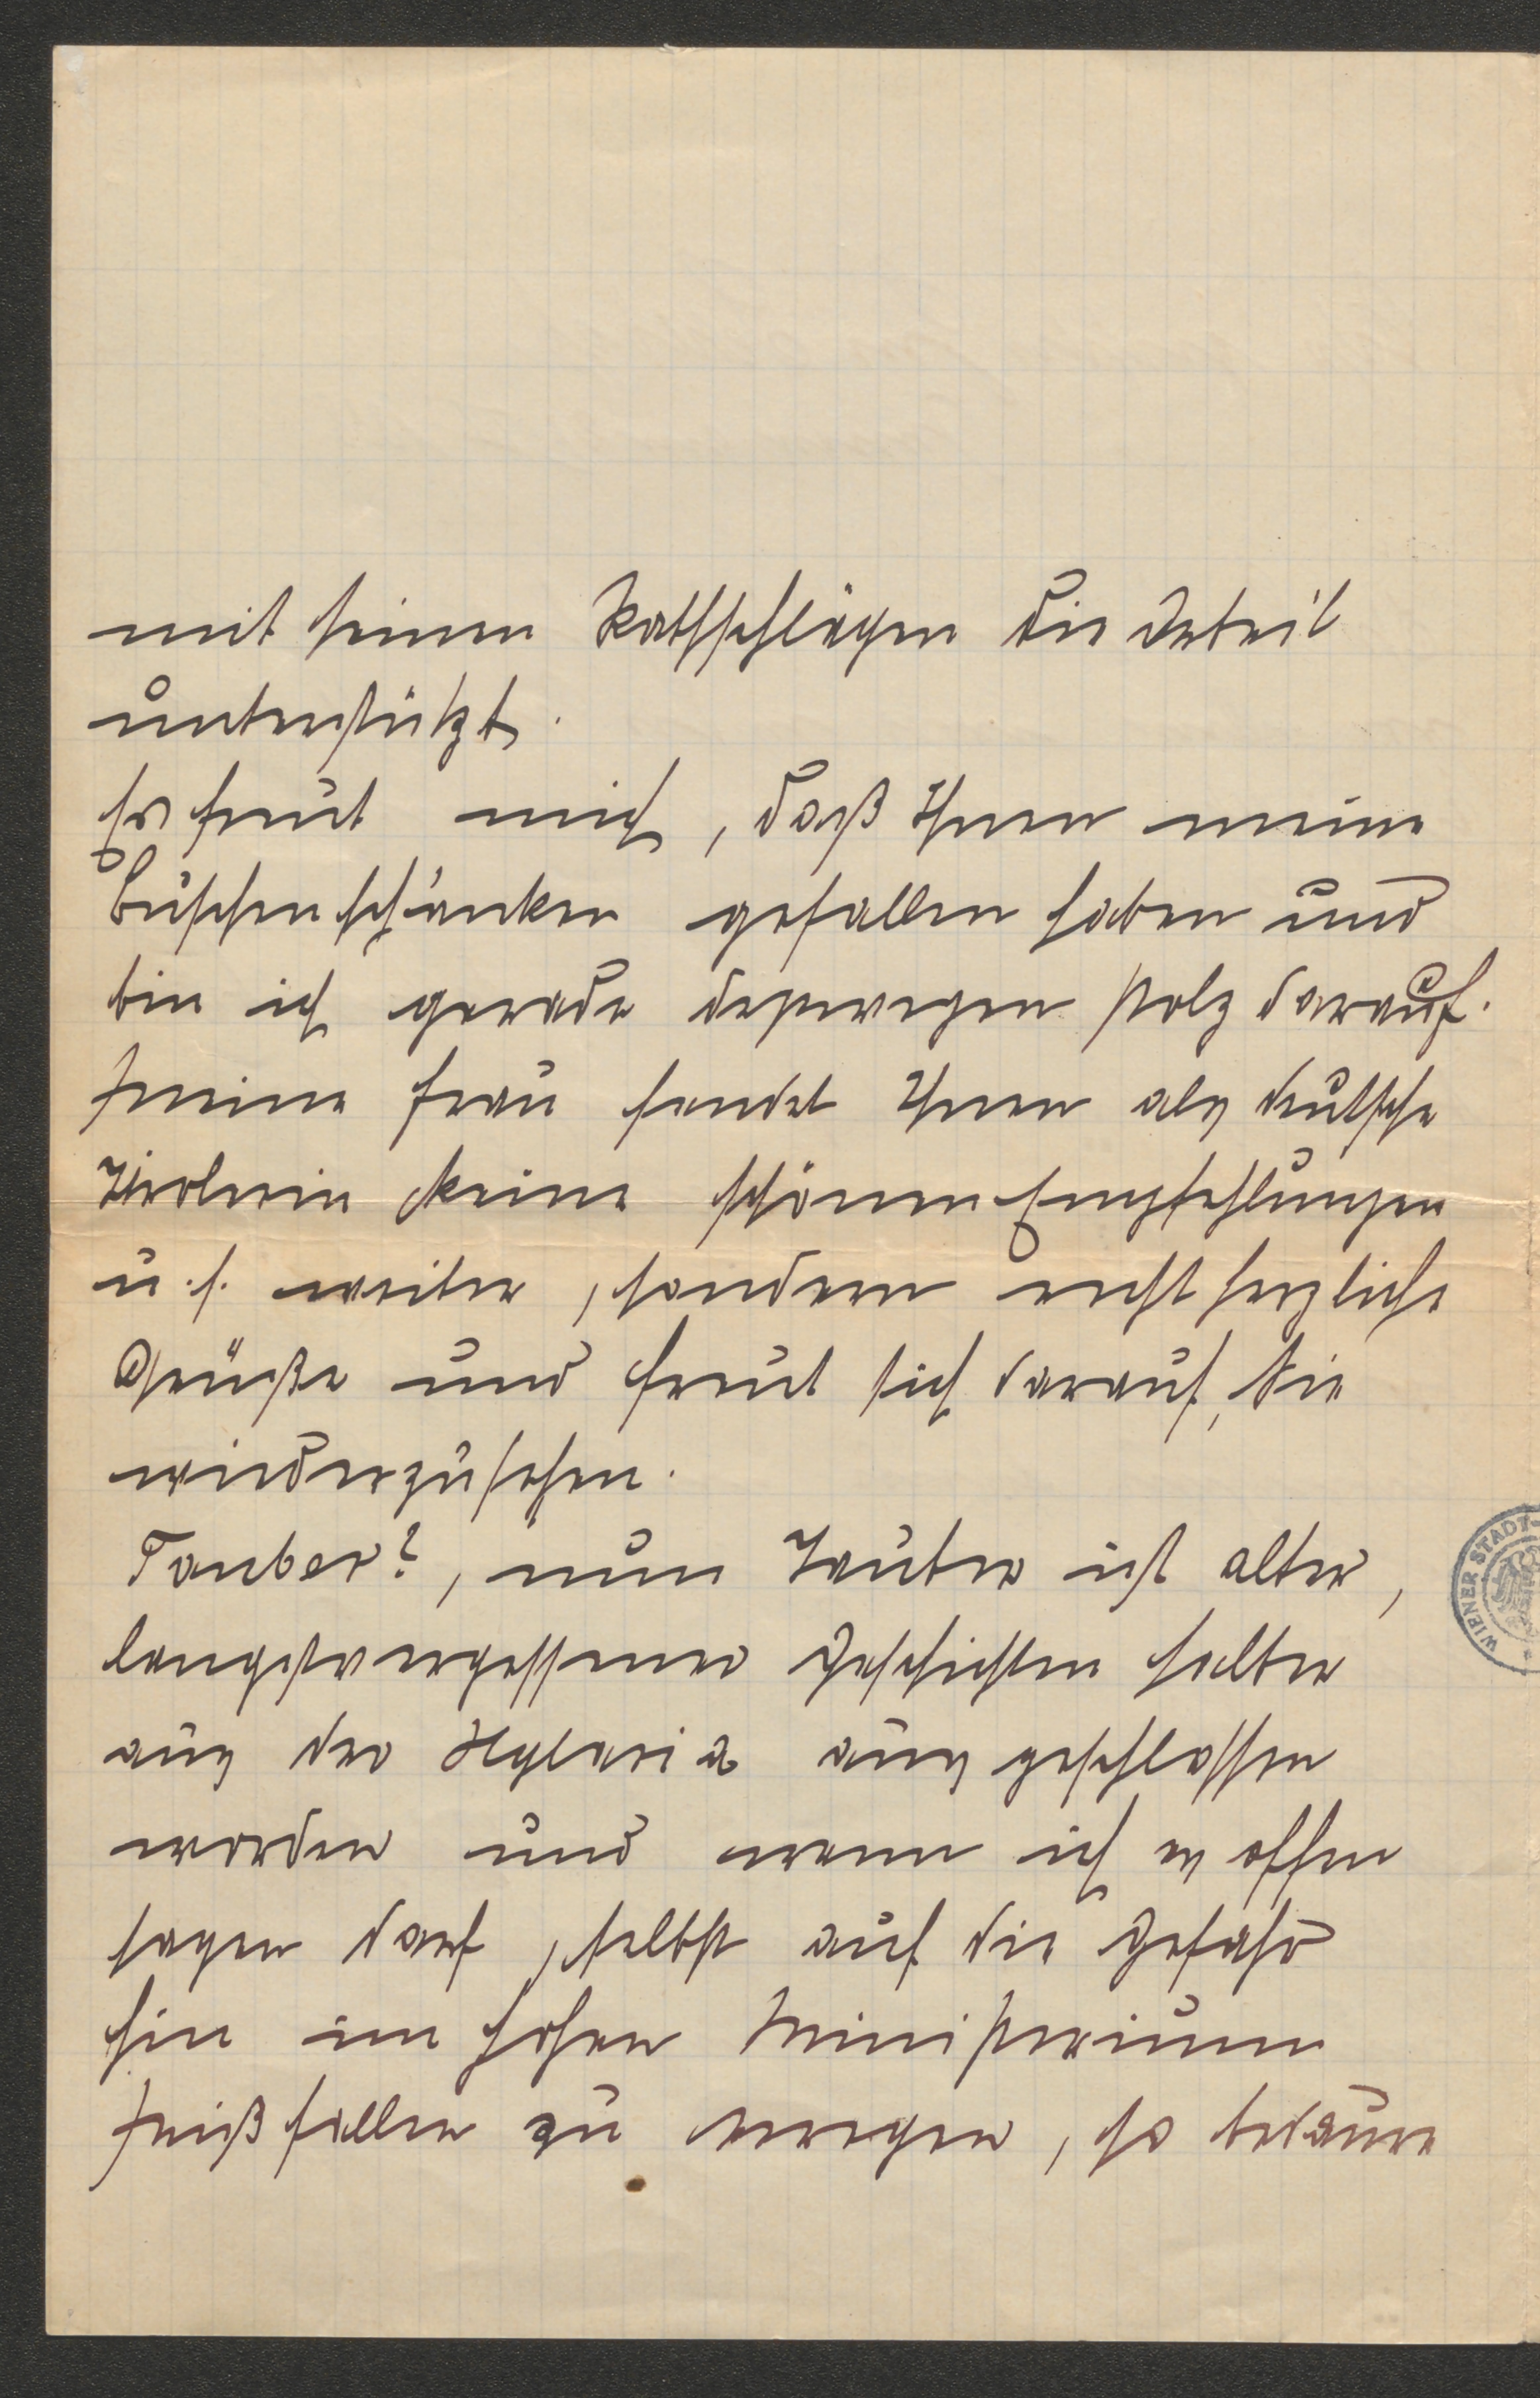 mit seinen Rathschlägen die Deteil
unterstützt.
Es freut mich, daß Ihnen meine
Buschenschänken gefallen haben und
bin ich gerade deswegen stolz darauf.
Meine Frau sendet Ihnen als deutsche
Tirolerin keine schönen Empfehlungen
u. s. weiter, sondern recht herzliche
Grüße und freut sich darauf, Sie
wiederzusehen.
Tauber?, nun Tauber ist alter,
langstvergessener Geschichten halber
aus der Hylaria ausgeschlossen
worden und wenn ich es offen
sagen darf, selbst auf die Gefahr
hin im hohen Ministerium
Mißfallen zu erregen, so bedaure
WIENER STADT-